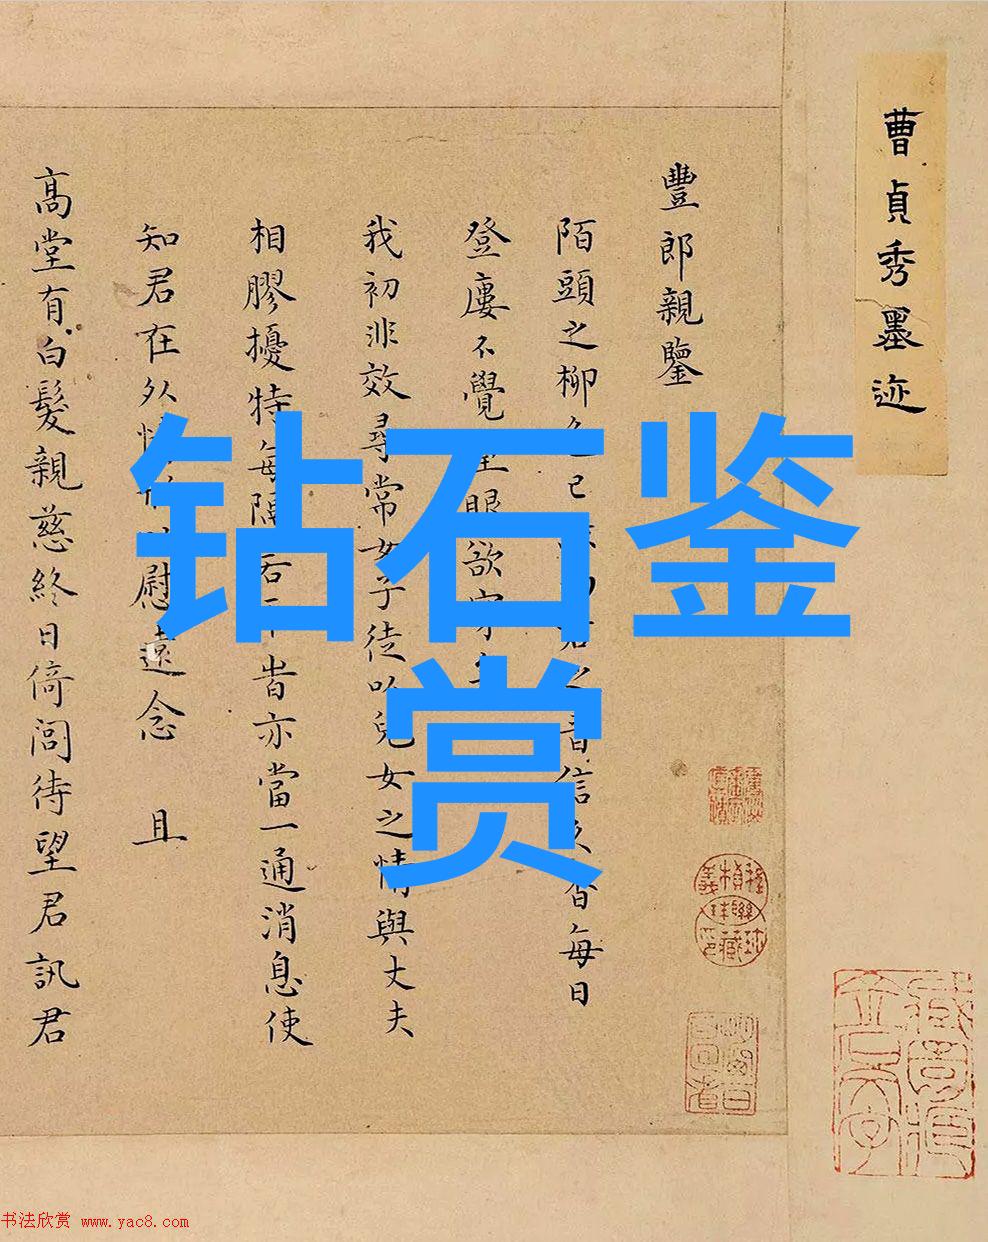 曹貞秀墨迹
豐郎親鑒
陌頭之柳色已君之音信久杳每日
登廔不覺望眼欲穿
我初非效尋常女子徒以兒女之情與丈夫
相膠擾特每隔若干旹亦當一通消息使
知君在外情形以慰遠念 且
高堂有白髮親慈終日倚閭待望君訊君
钻石鉴
赏
书法欣赏 www.yac8.com